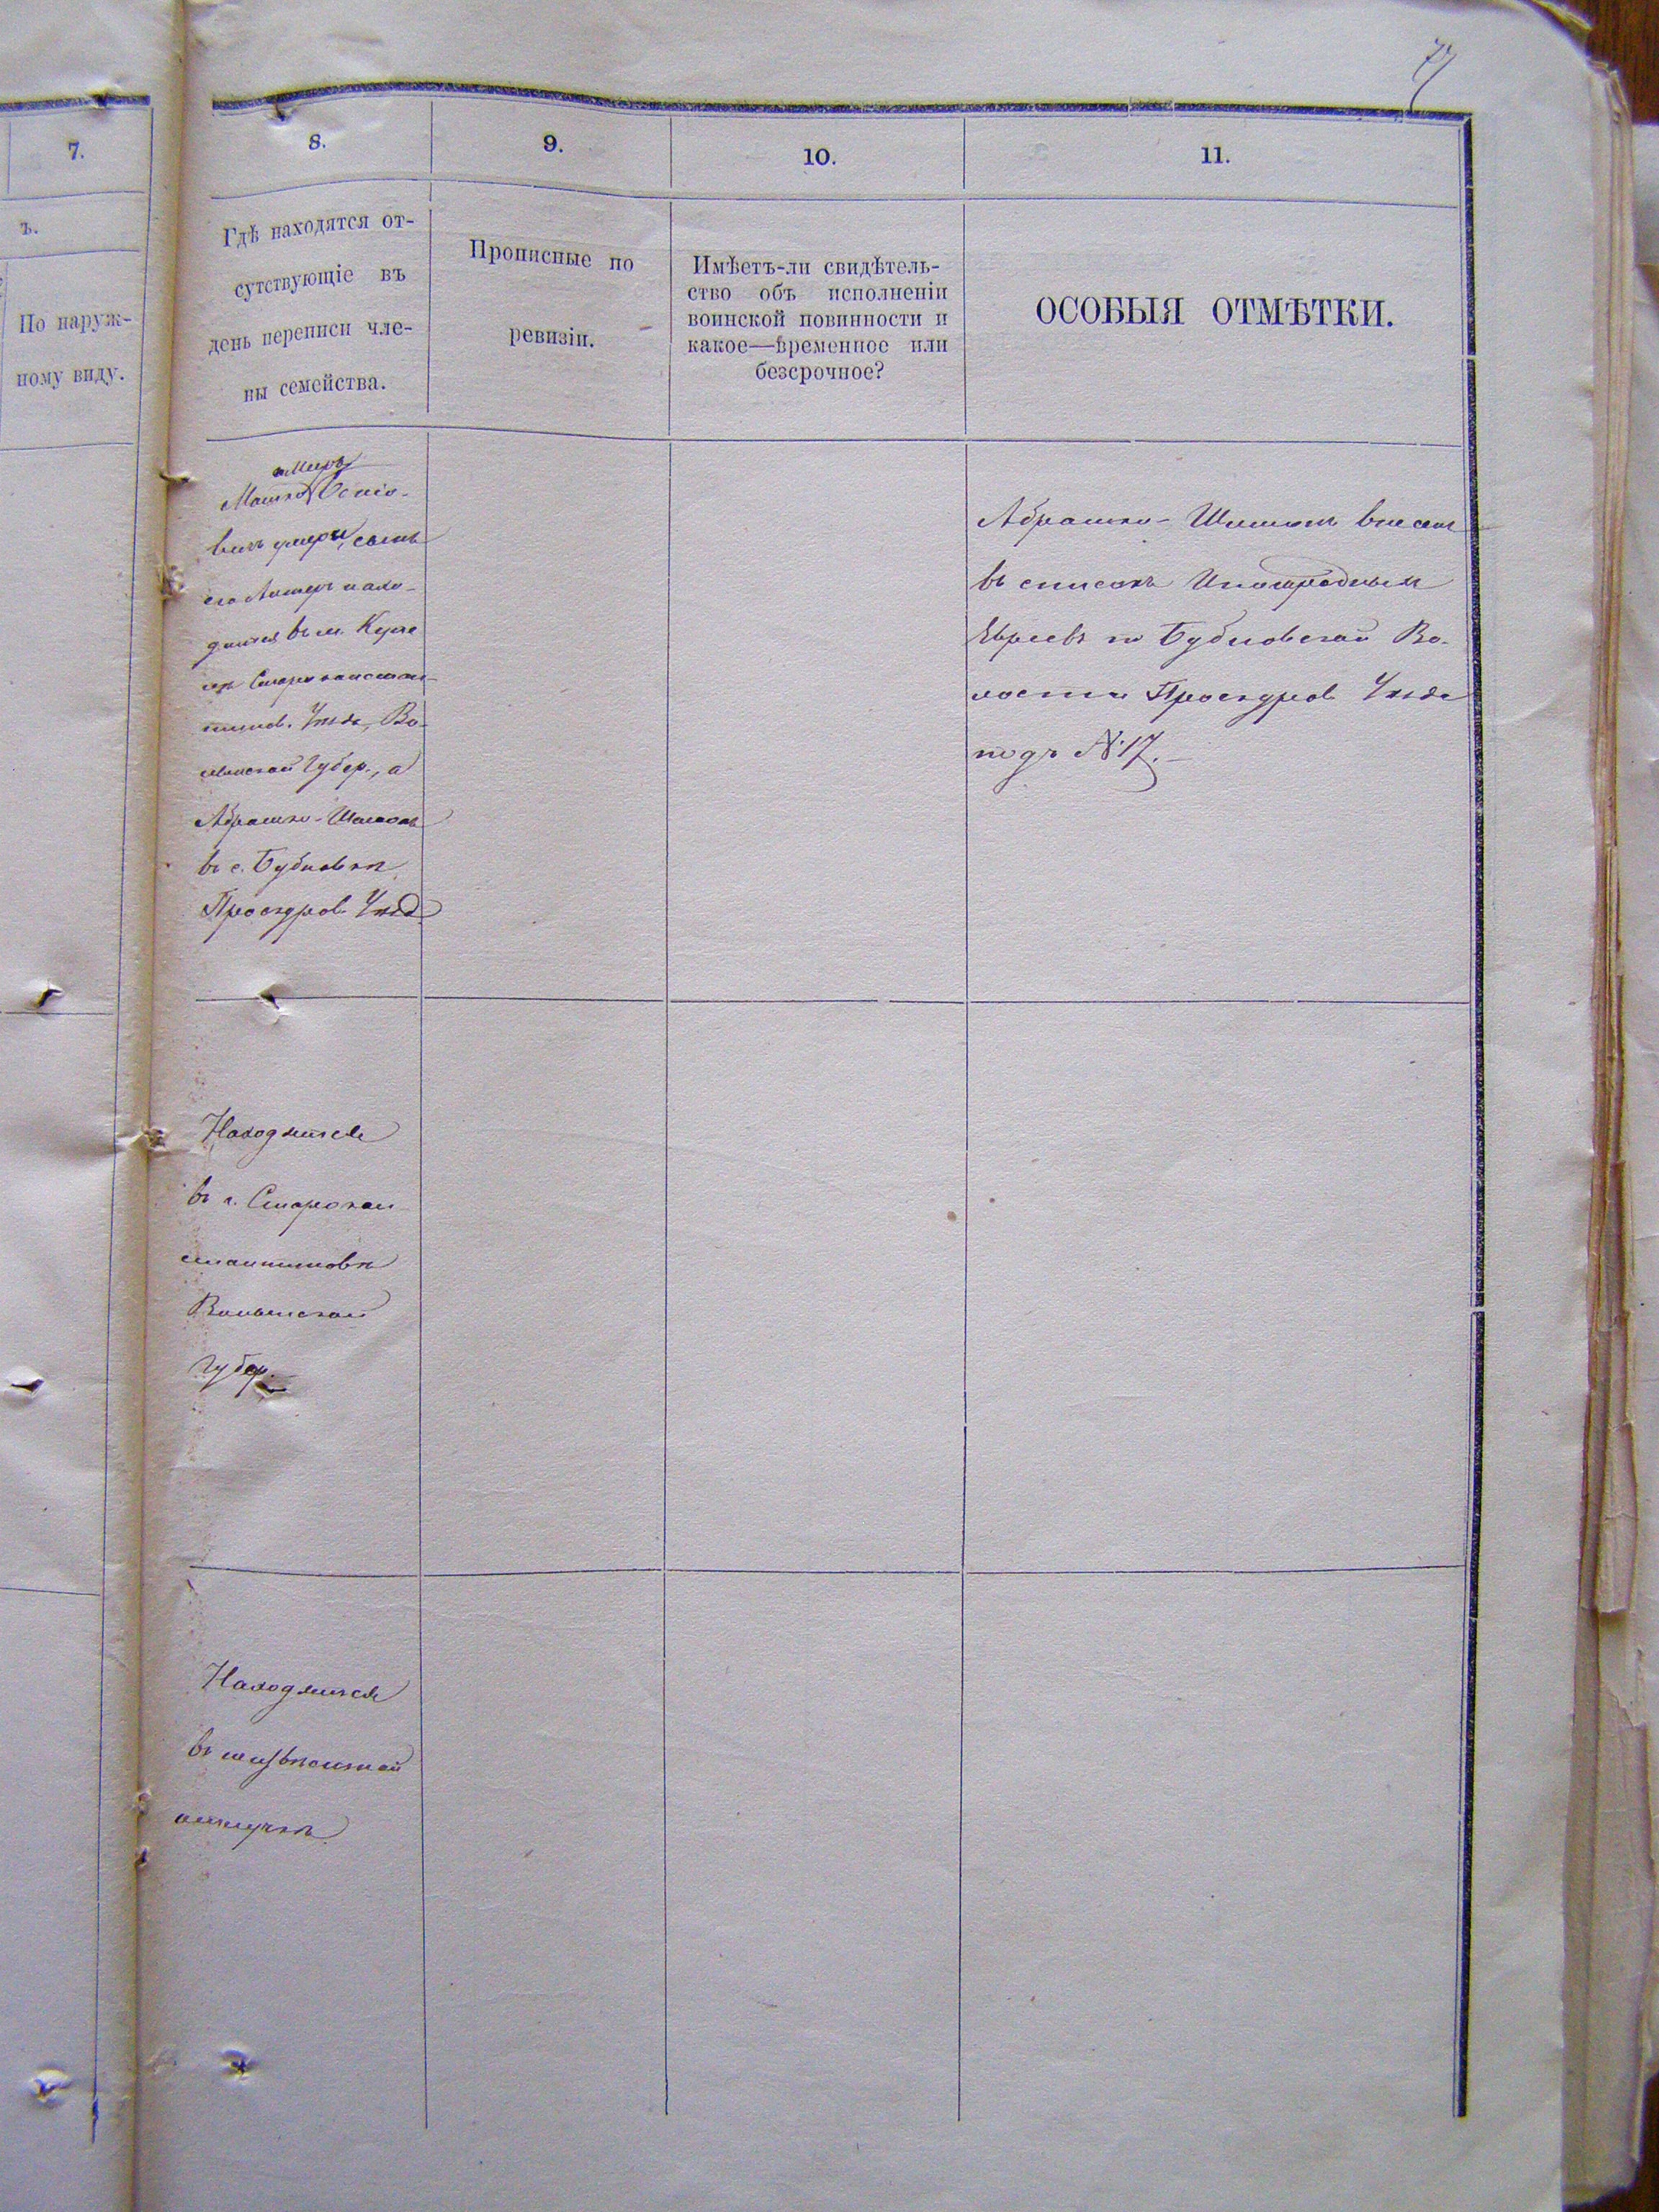 77
7.
8.
9.
10.
11.
ъ.
По наруж-
ному виду.
Гдѣ находятся от-
сутствующіе въ
день переписи чле-
ны семейства.
Прописные по
ревизіи.
Имѣетъ-ли свидѣтель-
ство объ исполненіи
воинской повинности и
какое—временное или
безсрочное?
ОСОБЫЯ ОТМѢТКИ.
Мошко
вичъ умеръ, сынъ
его Лейзеръ нахо-
дится въ м.
Староконстан-
тинов. Уѣзда, Во-
лынской Губер., а
Абрашко-Шимонъ
въ с. Бубновкѣ
Проскуров. Уѣзд.
Абрашко-Шимонъ внесенъ
въ списокъ Иногороднымъ
Евреевъ по Бубновской Во-
лости Проскуров. Уѣзда
подъ №17.
Находится
въ г. Старокон
стантиновѣ
Волынской
Губер.
Находится
въ неизвѣстной
отлучкѣ